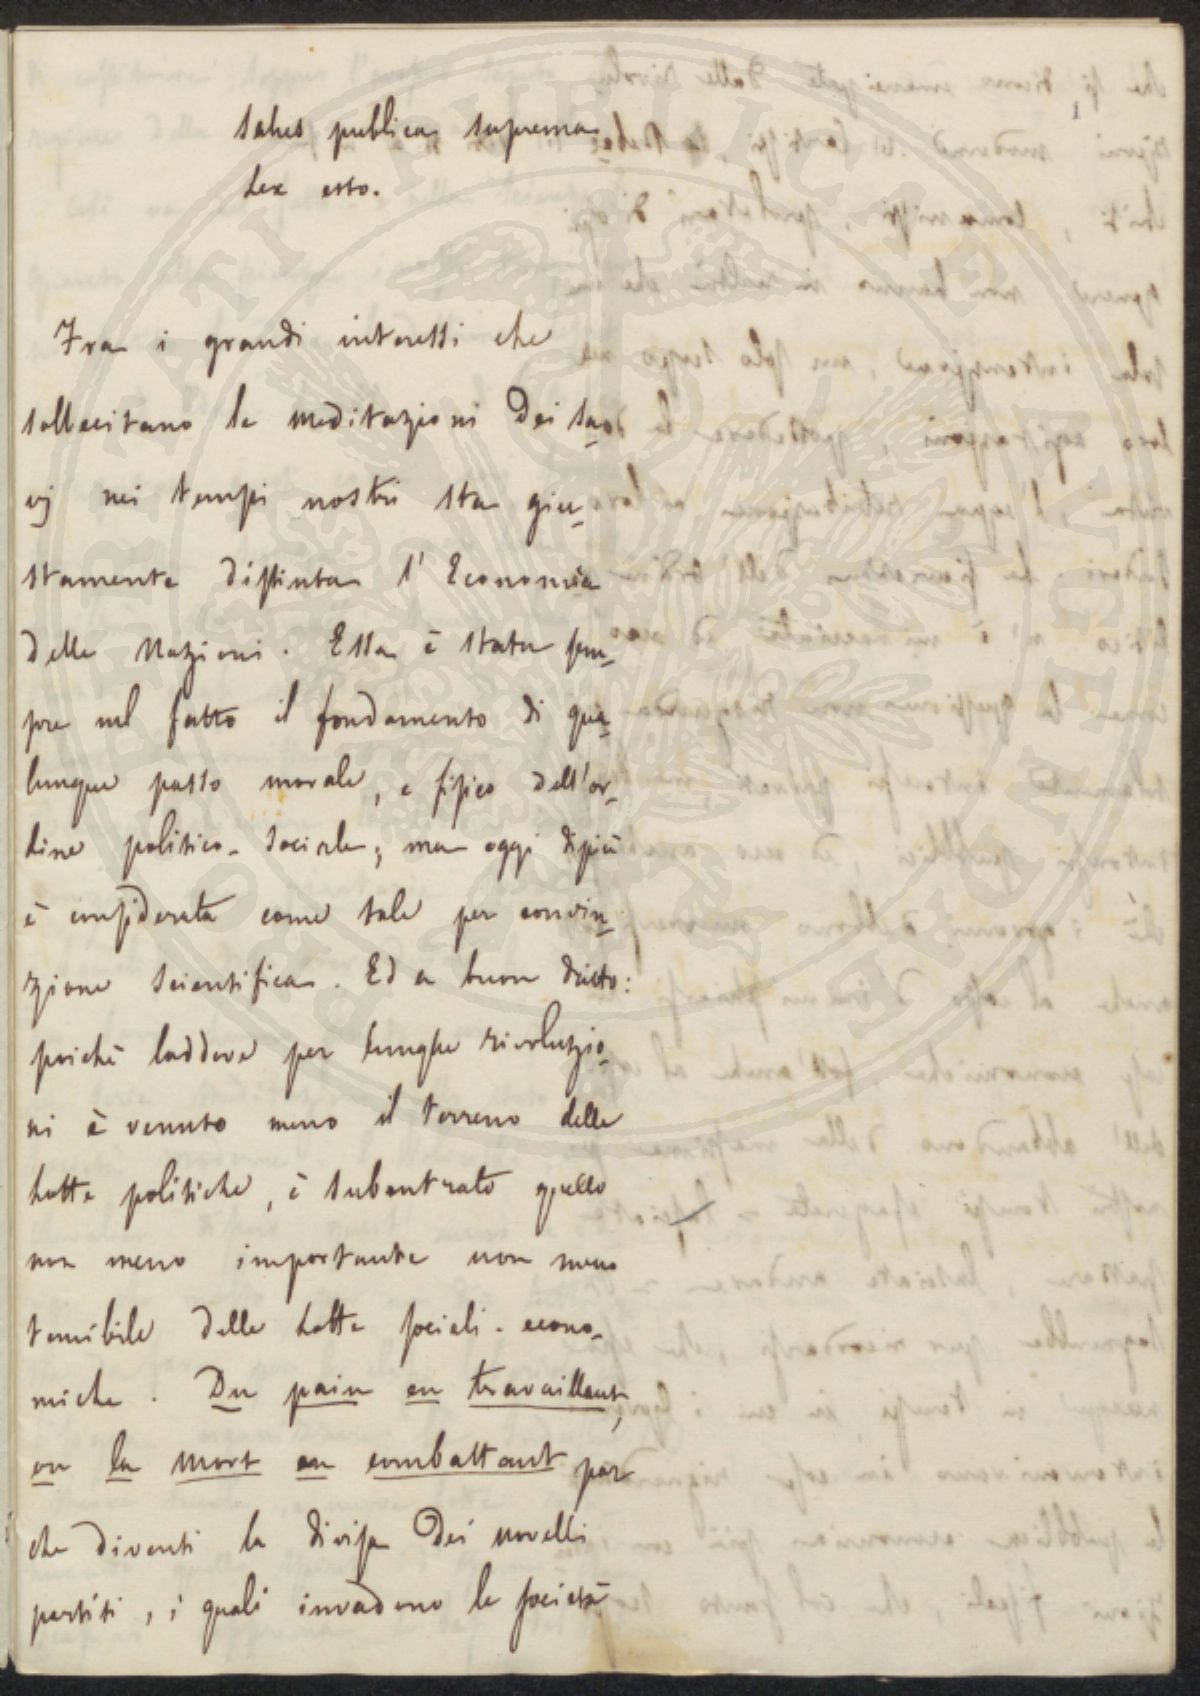 1
Salus publica suprema
Lex esto.
Fra i grandi interessi che
sollecitano le meditazioni dei sa-
vj nei tempi nostri sta giu-
stamente distinta l'Economia
delle Nazioni. Essa è stata sem-
pre nel fatto il fondamento di qua-
lunque passo morale, e fisico dell'or-
dine politico-sociale; ma oggi dipiù
è considerata come tale per convin-
zione scientifica. Ed a buon dritto:
poichè laddove per lunghe rivoluzio-
ni è venuto meno il terreno delle
lotte politiche, è subentrato quello
non meno importante non meno
temibile delle lotte sociali-econo-
miche. Du pain en travaillant,
ou la mort en combattant par
che diventi la divisa dei novelli
partiti, i quali invadono la società